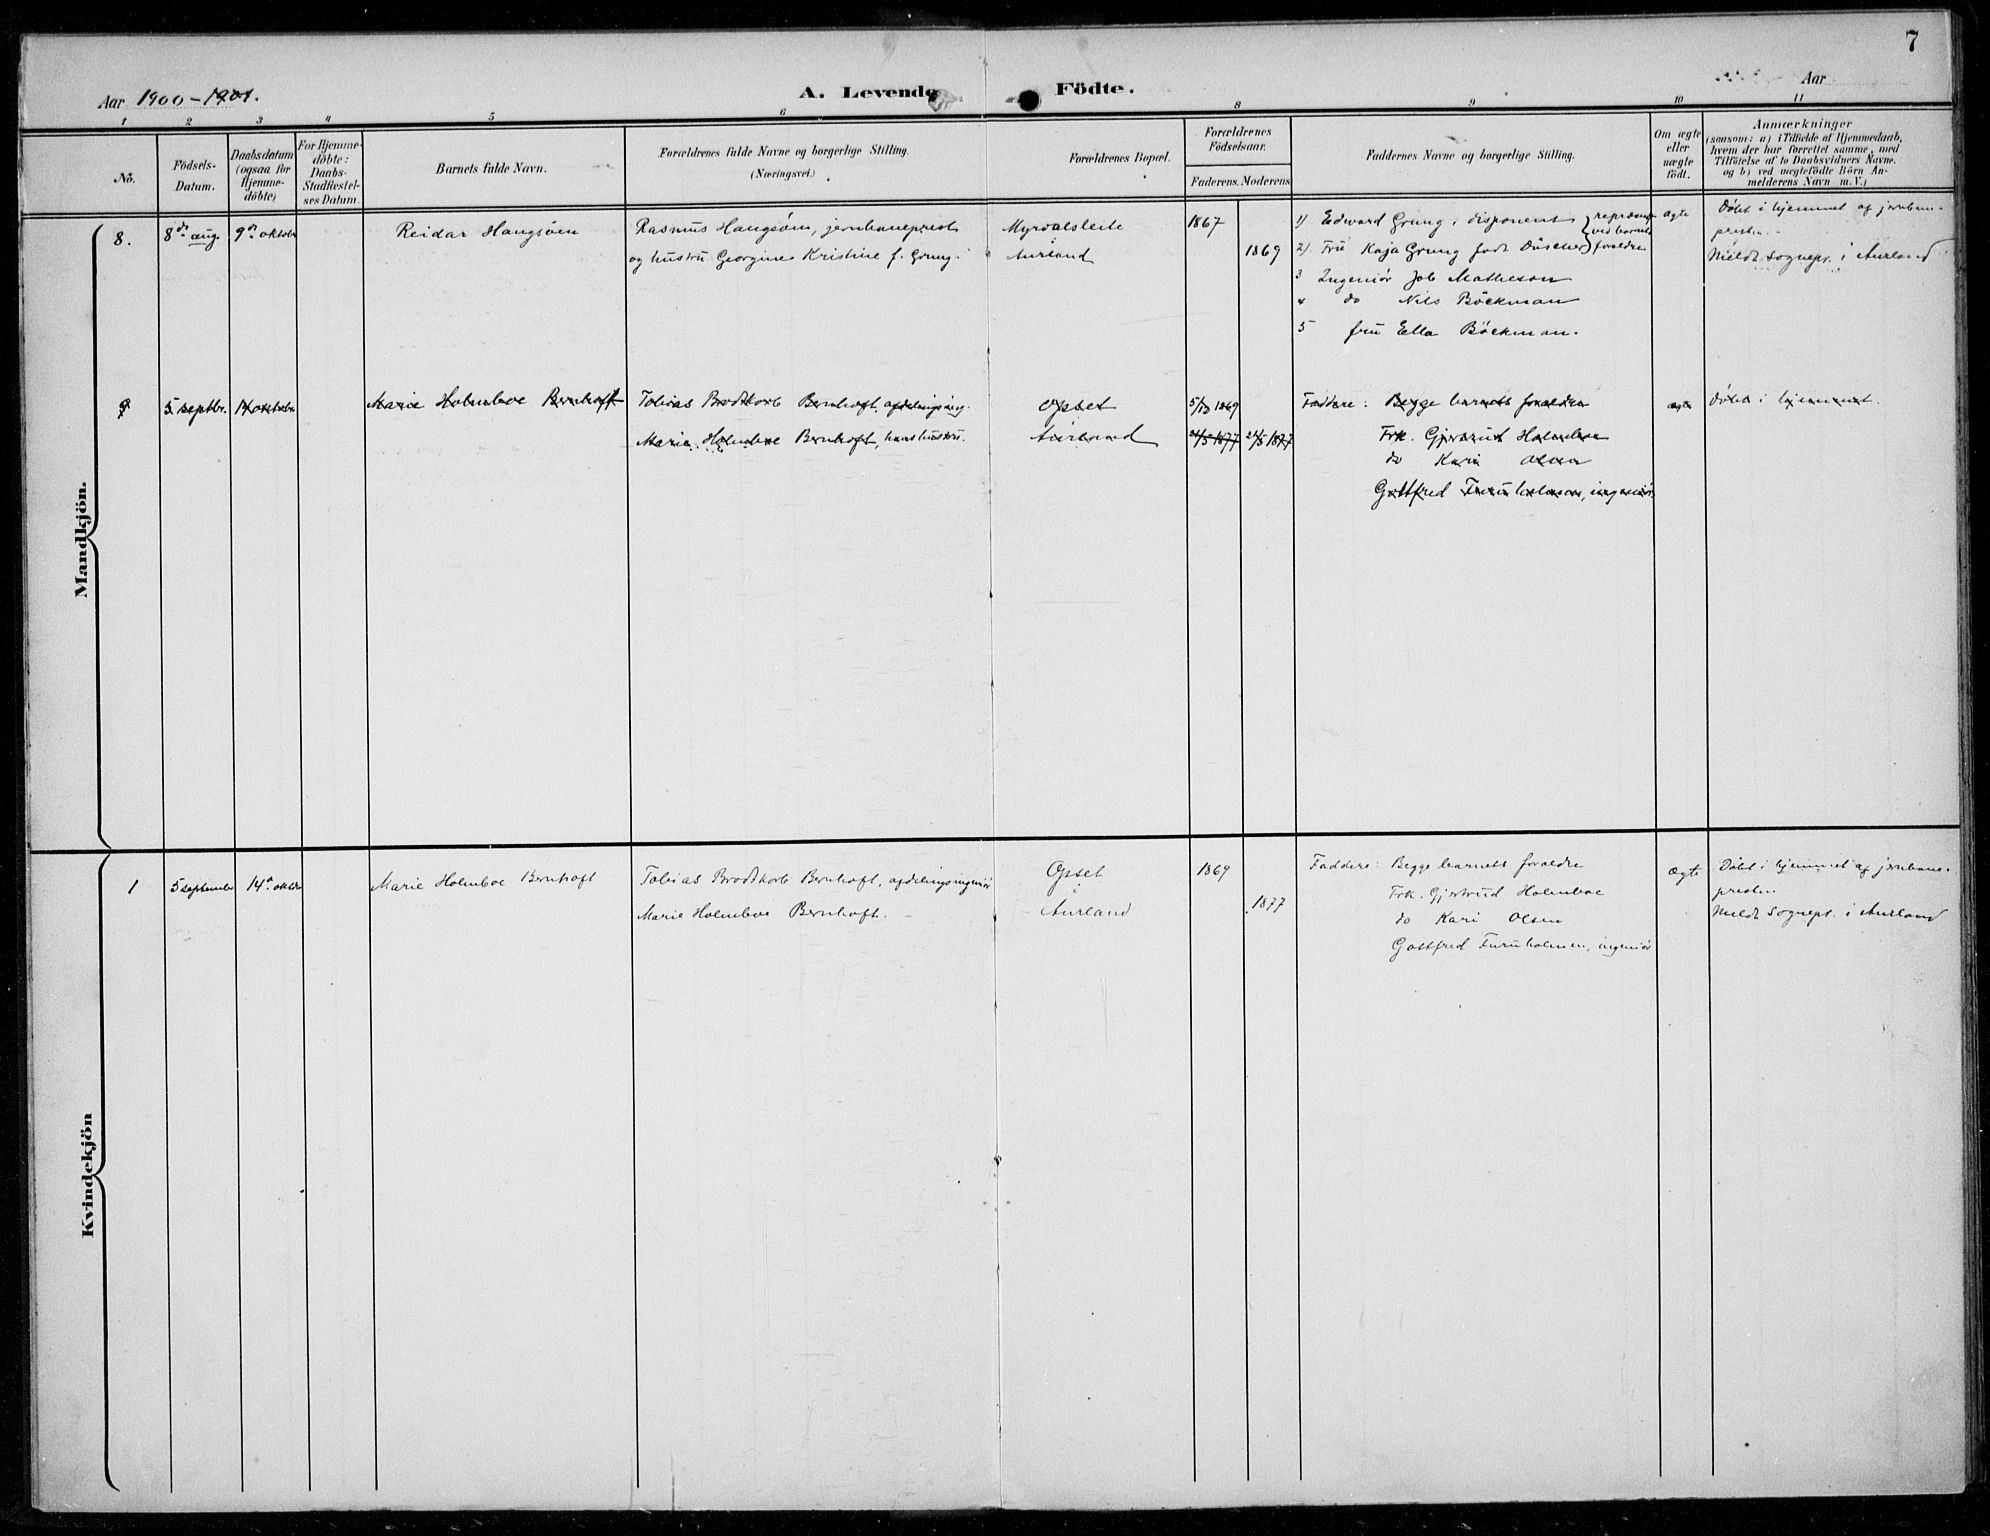 7
Aar 1900-1901.
A. Levende Födte.
Aar
1 2 3 4 5 6 8 9 10 11
No.
Födsels-Datum.
Daabsdatum (ogsaa for Hjemme-döbte)
For Hjemme-döbte: Daabs-Stadfiestel-ses Datum.
Barnets fulde Navn.
Forældrenes fulde Navne og borgerlige Stilling.
(Næringsvei.)
Forældrenes Bopæl.
Forældrenes Födselsaar.
Faderens. Moderens.
Faddernes Navne og borgerlige Stilling.
Om ægte eller uægte födt.
Anmærkninger
(saasom: a) i Tilfælde af Hjemmedaab,
hvem der har forrettet samme, med
Tilföielse af to Daabsvidners Navne.
og b) ved uægtefödte Börn An-
melderens Navn m. V.)
Mandkjön.
8.
8de aug.
9de oktobr
Reidar Haugsöen
Rasmus Haugsöen, jernbaneprest
og hustru Georgine Kristine f. Grung.
Myrdalsleite
Aurland
1867
1869
1) Edward Grung, disponent
2). Fru Kaja Grung födt
ved barnets
forældre
3 Ingeniör Job Matheson
4 do Nils Böckman
5 fru Ella Böckman.
ægte
Döbt i hjemmet af jernbane-
presten.
Meldt sognepr. i Aurland
9
5 septbr.
14 oktobr
Marie Holmboe Bernhoft
Tobias Brodtkorb Bernhoft, afdelingsing.
Marie Holmboe Bernhoft, hans hustru.
Opset
Aurland
5/10 1869
21/5 1877
21/5 1877
Faddere: Begge barnets forældre
Frk. Gjertrud Holmboe
do Kari Olsen
Gottfred Furuholmen, ingeniör
ægte
Döbt i hjemmet.
Kvindekjön
1
5 september
14de oktbr
Marie Holmboe Bernhoft
Tobias Brodtkorb Bernhoft, afdelingsingeniör
Marie Holmboe Bernhoft.
Opset
i
Aurland
1869
1877
Faddere: Begge barnets forældre
Frk. Gjertrud Holmboe
do Kari Olsen
Gottfred Furuholmen, ingeniör
ægte
Döbt i hjemmet af jernbane-
presten.
Meldt sognepr. i Aurland